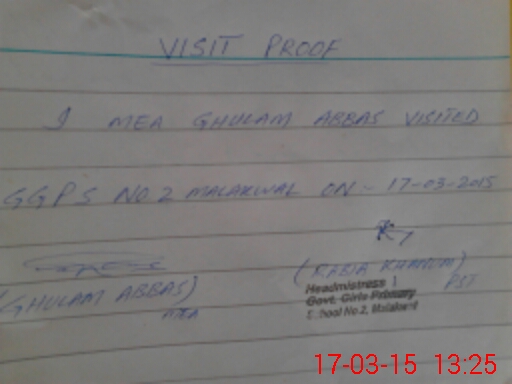 VISIT PROOF
I MEA GHULAM ABBAS VISITED
GGPS NO 2 MALAKWAL ON - 17-03-2015
(GHULAM ABBAS)
MEA
(RABIA KHANUM)
PST
Headmistress
Govt. Girls Primary
School No.2, Malakwal
17-03-15 13:25